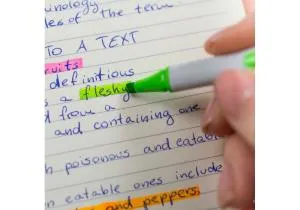 les of the term
TO A TEXT
fruits
definitions
s a fleshy
d from a
and containing one
h poisonous and eatable
n eatable ones include
and peppers